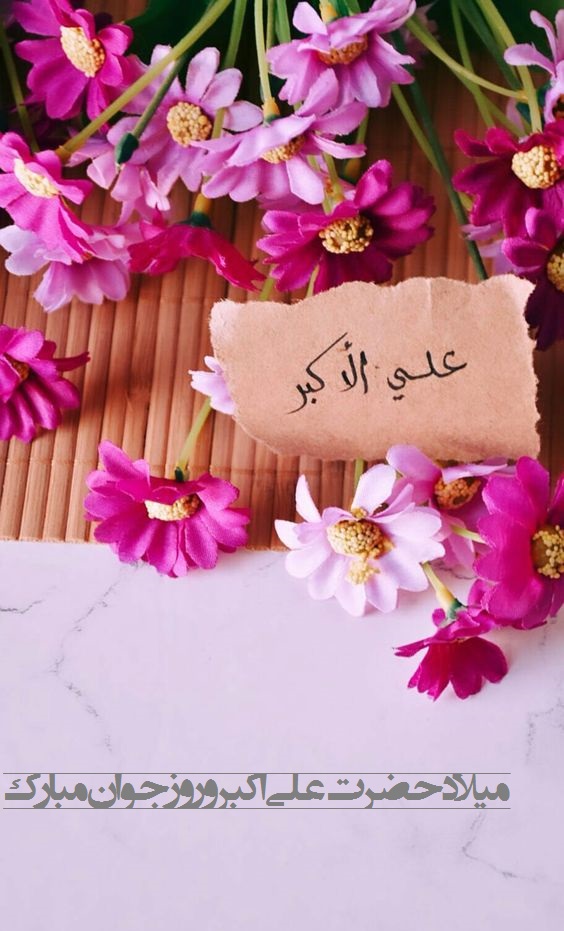 علي الأكبر
میلاد حضرت علی اکبر و روز جوان مبارک